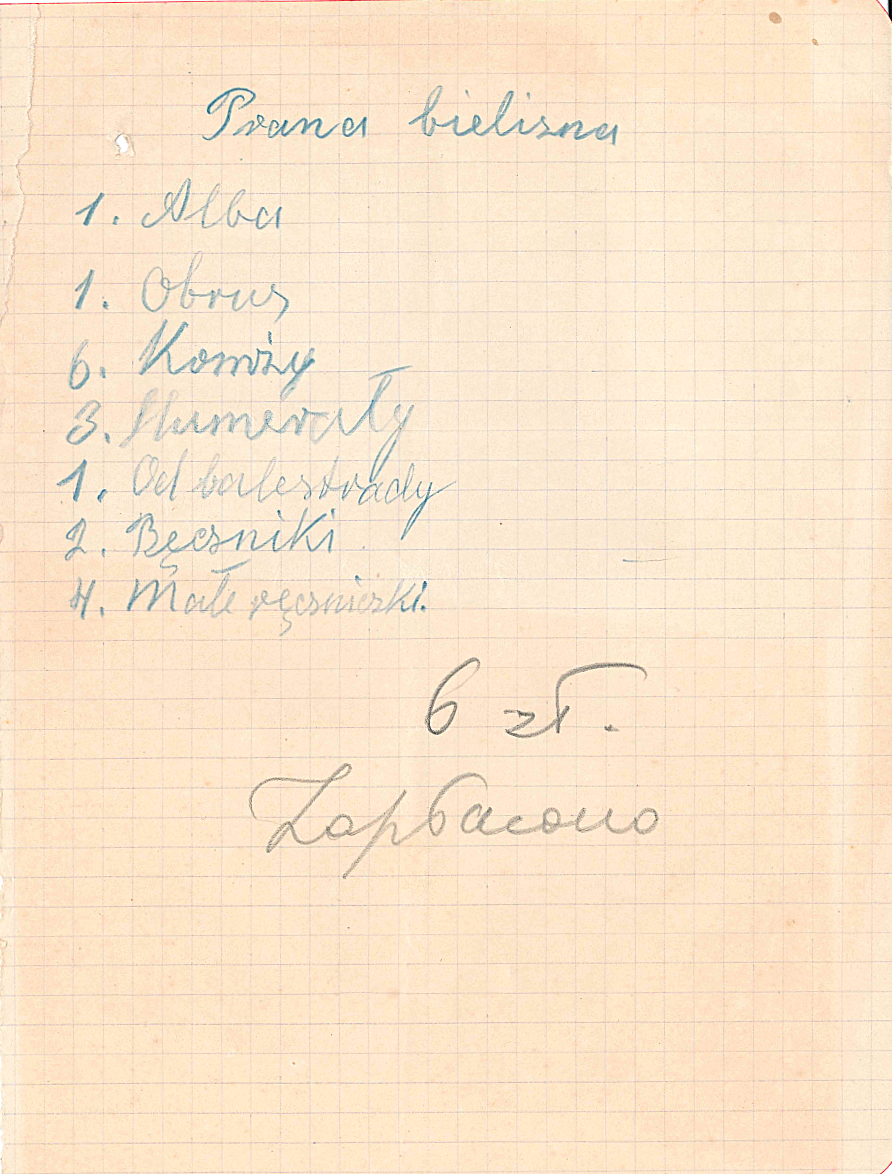 Prana bielizna
1. Alba
1. Obrus
6. Komży
3. Humerały
1. Od balestrady
2. Ręczniki
4. Małe ręczniczki.
6 zł.
Zapłacono